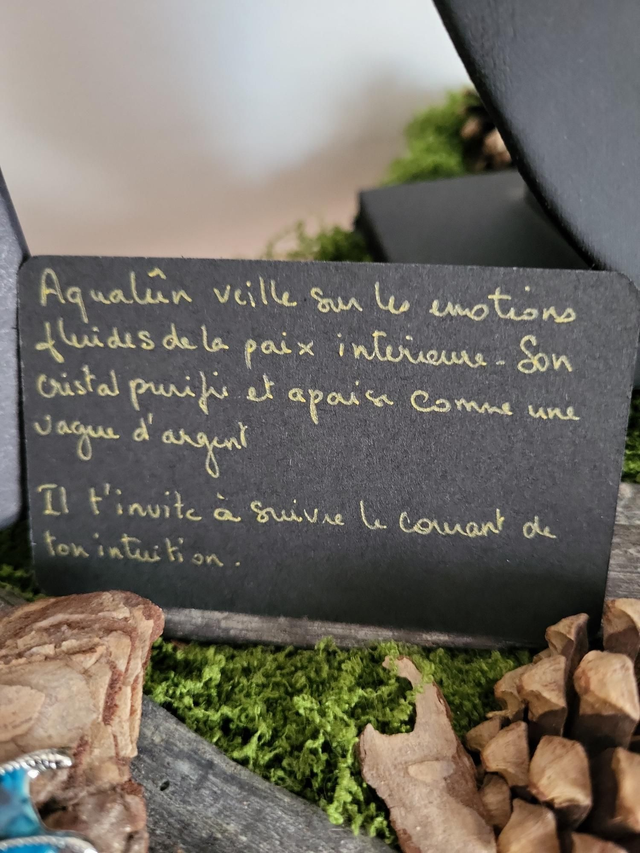 Aqualûn veille sur les émotions
fluides de la paix intérieure. Son
cristal purifie et apaise comme une
vague d'argent
Il t'invite à suivre le courant de
ton intuition.